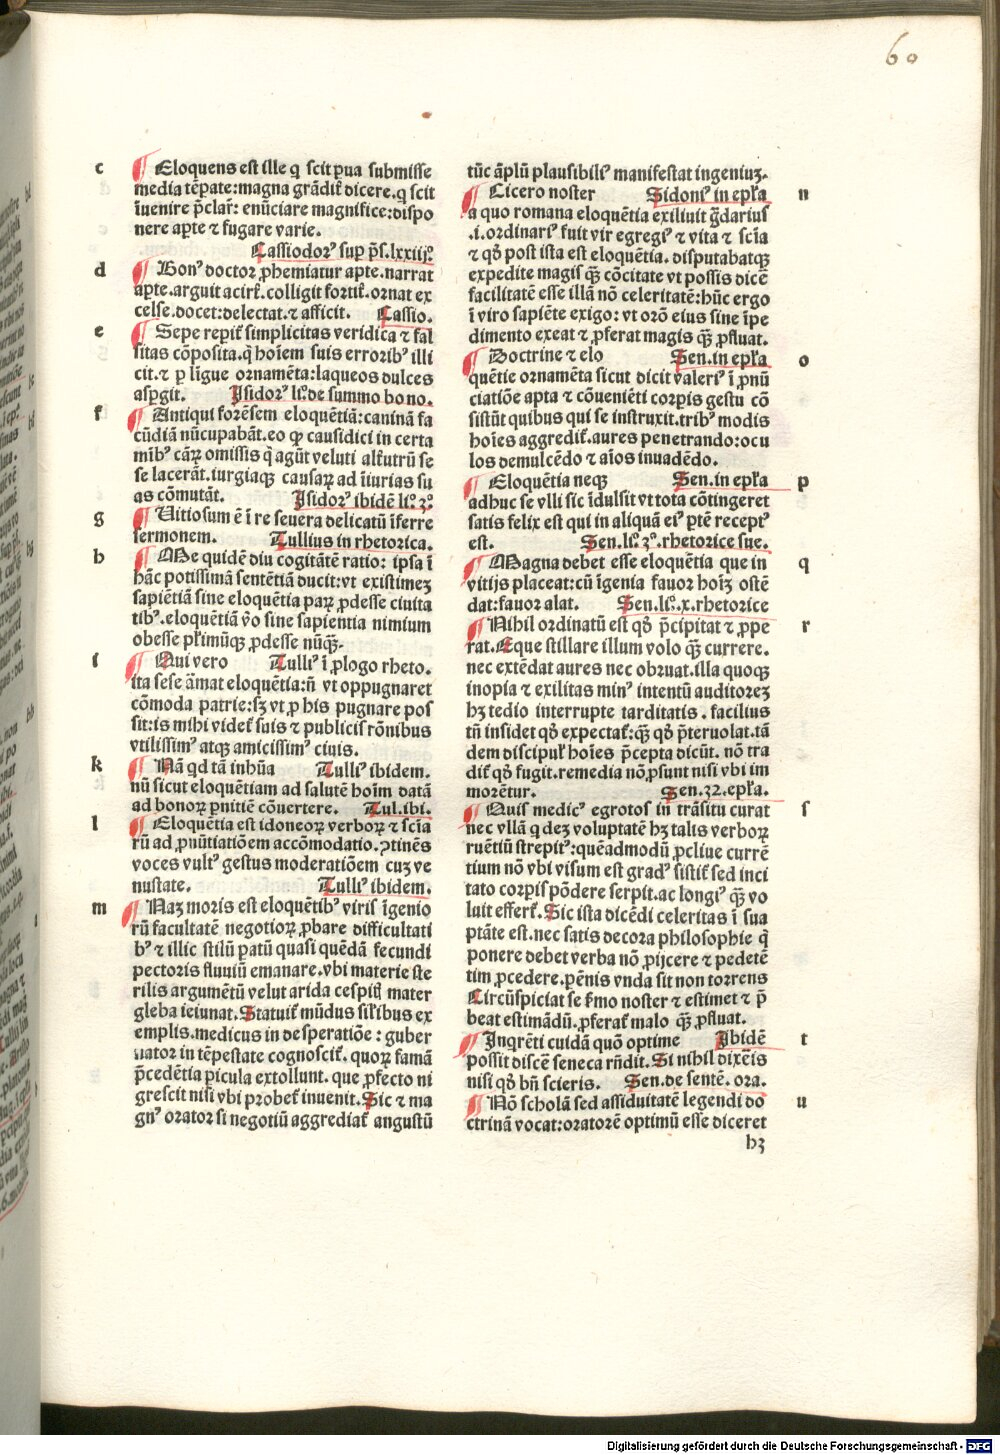 60
c Eloquens est ille q̄ scit ꝑua submisse
media tēpate:magna grādit᷑ dicere.q̄ scit
īuenire p̄clar᷑: enūciare magnifice:dispo
nere apte ⁊ fugare varie.
Cassiodorꝰ suꝑ p̄s.lxxiijº.
d Bonꝰ doctor ꝓhemiatur apte.narrat
apte.arguit acrit᷑.colligit fortit᷑.ornat ex
celse.docet:delectat.⁊ afficit. Cassio.
e Sepe repit᷑ simplicitas veridica ⁊ fal
sitas cōposita.q̄ hoīem suis erroribꝰ illi
cit.⁊ ꝑ līgue ornamēta:laqueos dulces
aspgit. Isidorꝰ li.de summo bono.
f Antiqui forēsem eloquētiā:caninā fa
cūdiā nūcupabāt.eo ꝙ causidici in certa
mībꝰ cāꝝ omissis q̄ agūt veluti alt᷑utrū se
se lacerāt.iurgiaqꝫ causaꝝ ad īiurias su
as cōmutāt. Isidorꝰ ibidē li.3º.
g Uitiosum ē ī re seuera delicatū īferre
sermonem. Tullius in rhetorica.
h Me quidē diu cogitātē ratio: ipsa ī
hāc potissimā sentētiā ducit:vt existimeꝫ
sapiētiā sine eloquētia paꝝ ꝓdesse ciuita
tibꝰ.eloquētiā v̄o sine sapientia nimium
obesse pler̄ūqꝫ ꝓdesse nūqꝫ̄.
i Qui vero Tulliꝰ ī ꝓlogo rheto.
ita sese āmat eloquētia:ñ vt oppugnaret
cōmoda patrie:sꝫ vt ꝓ his pugnare pos
sit:is mihi videt᷑ suis ⁊ publicis rōnibus
vtilissimꝰ atqꝫ amicissimꝰ ciuis.
k Nā qd tā inhūa Tulliꝰ ibidem.
nū sicut eloquētiam ad salutē hoīm datā
ad bonoꝝ pnitiē cōuertere. Tul.ibi.
l Eloquētia est idoneoꝝ verboꝝ ⁊ scīa
rū ad ꝓnūtiatiōem accōmodatio.ꝯtinēs
voces vultꝰ gestus moderatiōem cuꝫ ve
nustate. Tulliꝰ ibidem.
m Naꝫ moris est eloquētibꝰ viris īgenio
rū facultatē negotioꝝ ꝓbare difficultati
bꝰ ⁊ illic stilū patū quasi quēdā fecundi
pectoris fluuiū emanare.vbi materie ste
rilis argumētū velut arida cespitꝭ mater
gleba ieiunat.Statuit᷑ mūdus sil̄ibus ex
emplis.medicus in desperatiōe: guber
nator in tēpestate cognoscit᷑. quoꝝ famā
p̄cedētia picula extollunt. que ꝓfecto ni
grescit nisi vbi probet᷑ inuenit.Sic ⁊ ma
gnꝰ orator si negotiū aggrediat᷑ angustū
tūc āplū plausibilꝭ manifestat ingeniuꝫ.
n Cicero noster Sidonꝰ in epl̄a
a quo romana eloquētia exiliuit ḡdariuſ
.i.ordinariꝰ fuit vir egregiꝰ ⁊ vita ⁊ scīa
⁊ qd̓ post ista est eloquētia. disputabatqꝫ
expedite magis qꝫ̄ cōcitate vt possis dicē
facilitatē esse illā nō celeritatē:hūc ergo
ī viro sapiēte exigo: vt orō eius sine īpe
dimento exeat ⁊ ꝓferat magis qꝫ̄ ꝓfluat.
o Doctrine ⁊ elo Sen.in epl̄a
quētie ornamēta sicut dicit valeriꝰ ī ꝓnū
ciatiōe apta ⁊ cōueniēti corꝑis gestu cō
sistūt quibus qui se instruxit.tribꝰ modis
hoīes aggredit᷑.aures penetrando:ocu
los demulcēdo ⁊ aīos inuadēdo.
p Eloquētia neqꝫ Sen.in epl̄a
adhuc se vlli sic īdulsit vt tota cōtingeret
satis felix est qui in aliquā eiꝰ ptē receptꝰ
est. Sen.li.3º.rhetorice sue.
q Magna debet esse eloquētia que in
vitijs placeat:cū īgenia fauor hoīꝫ ostē
dat:fauor alat. Sen.li.x.rhetorice
r Nihil ordinatū est qd̓ p̄cipitat ⁊ ꝓpe
rat.Eque stillare illum volo qꝫ̄ currere.
nec extēdat aures nec obruat.illa quoqꝫ
inopia ⁊ exilitas minꝰ intentū auditoreꝫ
hꝫ tedio interrupte tarditatis . facilius
tn̄ insidet qd̓ expectat᷑:qꝫ̄ qd̓ p̄teruolat.tā
dem discipul᷑ hoīes p̄cepta dicūt. nō tra
dit᷑ qd̓ fugit.remedia nō ꝓsunt nisi vbi im
morētur. Sen.32.epl̄a.
s Quis medicꝰ egrotos in trāsitu curat
nec vllā q̄deꝫ voluptatē hꝫ talis verboꝝ
ruētiū strepitꝰ:quēadmodū ꝓcliue currē
tium nō vbi visum est gradꝰ sistit᷑ sed inci
tato corꝑis pōdere serpit.ac longiꝰ qꝫ̄ vo
luit effert᷑.Sic ista dicēdi celeritas ī sua
ptāte est.nec satis decora philosophie q̄
ponere debet verba nō ꝓijcere ⁊ pedetē
tim ꝓcedere.pēnis vnda sit non torrens
Circūspiciat se s̄mo noster ⁊ estimet ⁊ p̄
beat estimādū.ꝓferat᷑ malo qꝫ̄ ꝓfluat.
t Inqrēti cuidā quō optime Ibidē
possit discē seneca rn̄dit.Si nihil dixēis
nisi qd̓ bn̄ scieris. Sen.de sentē. ora.
u Nō scholā sed assiduitatē legendi do
ctrinā vocat:oratorē optimū esse diceret
h3
Digitalisierung gefördert durch die Deutsche Forschungsgemeinschaft - DFG